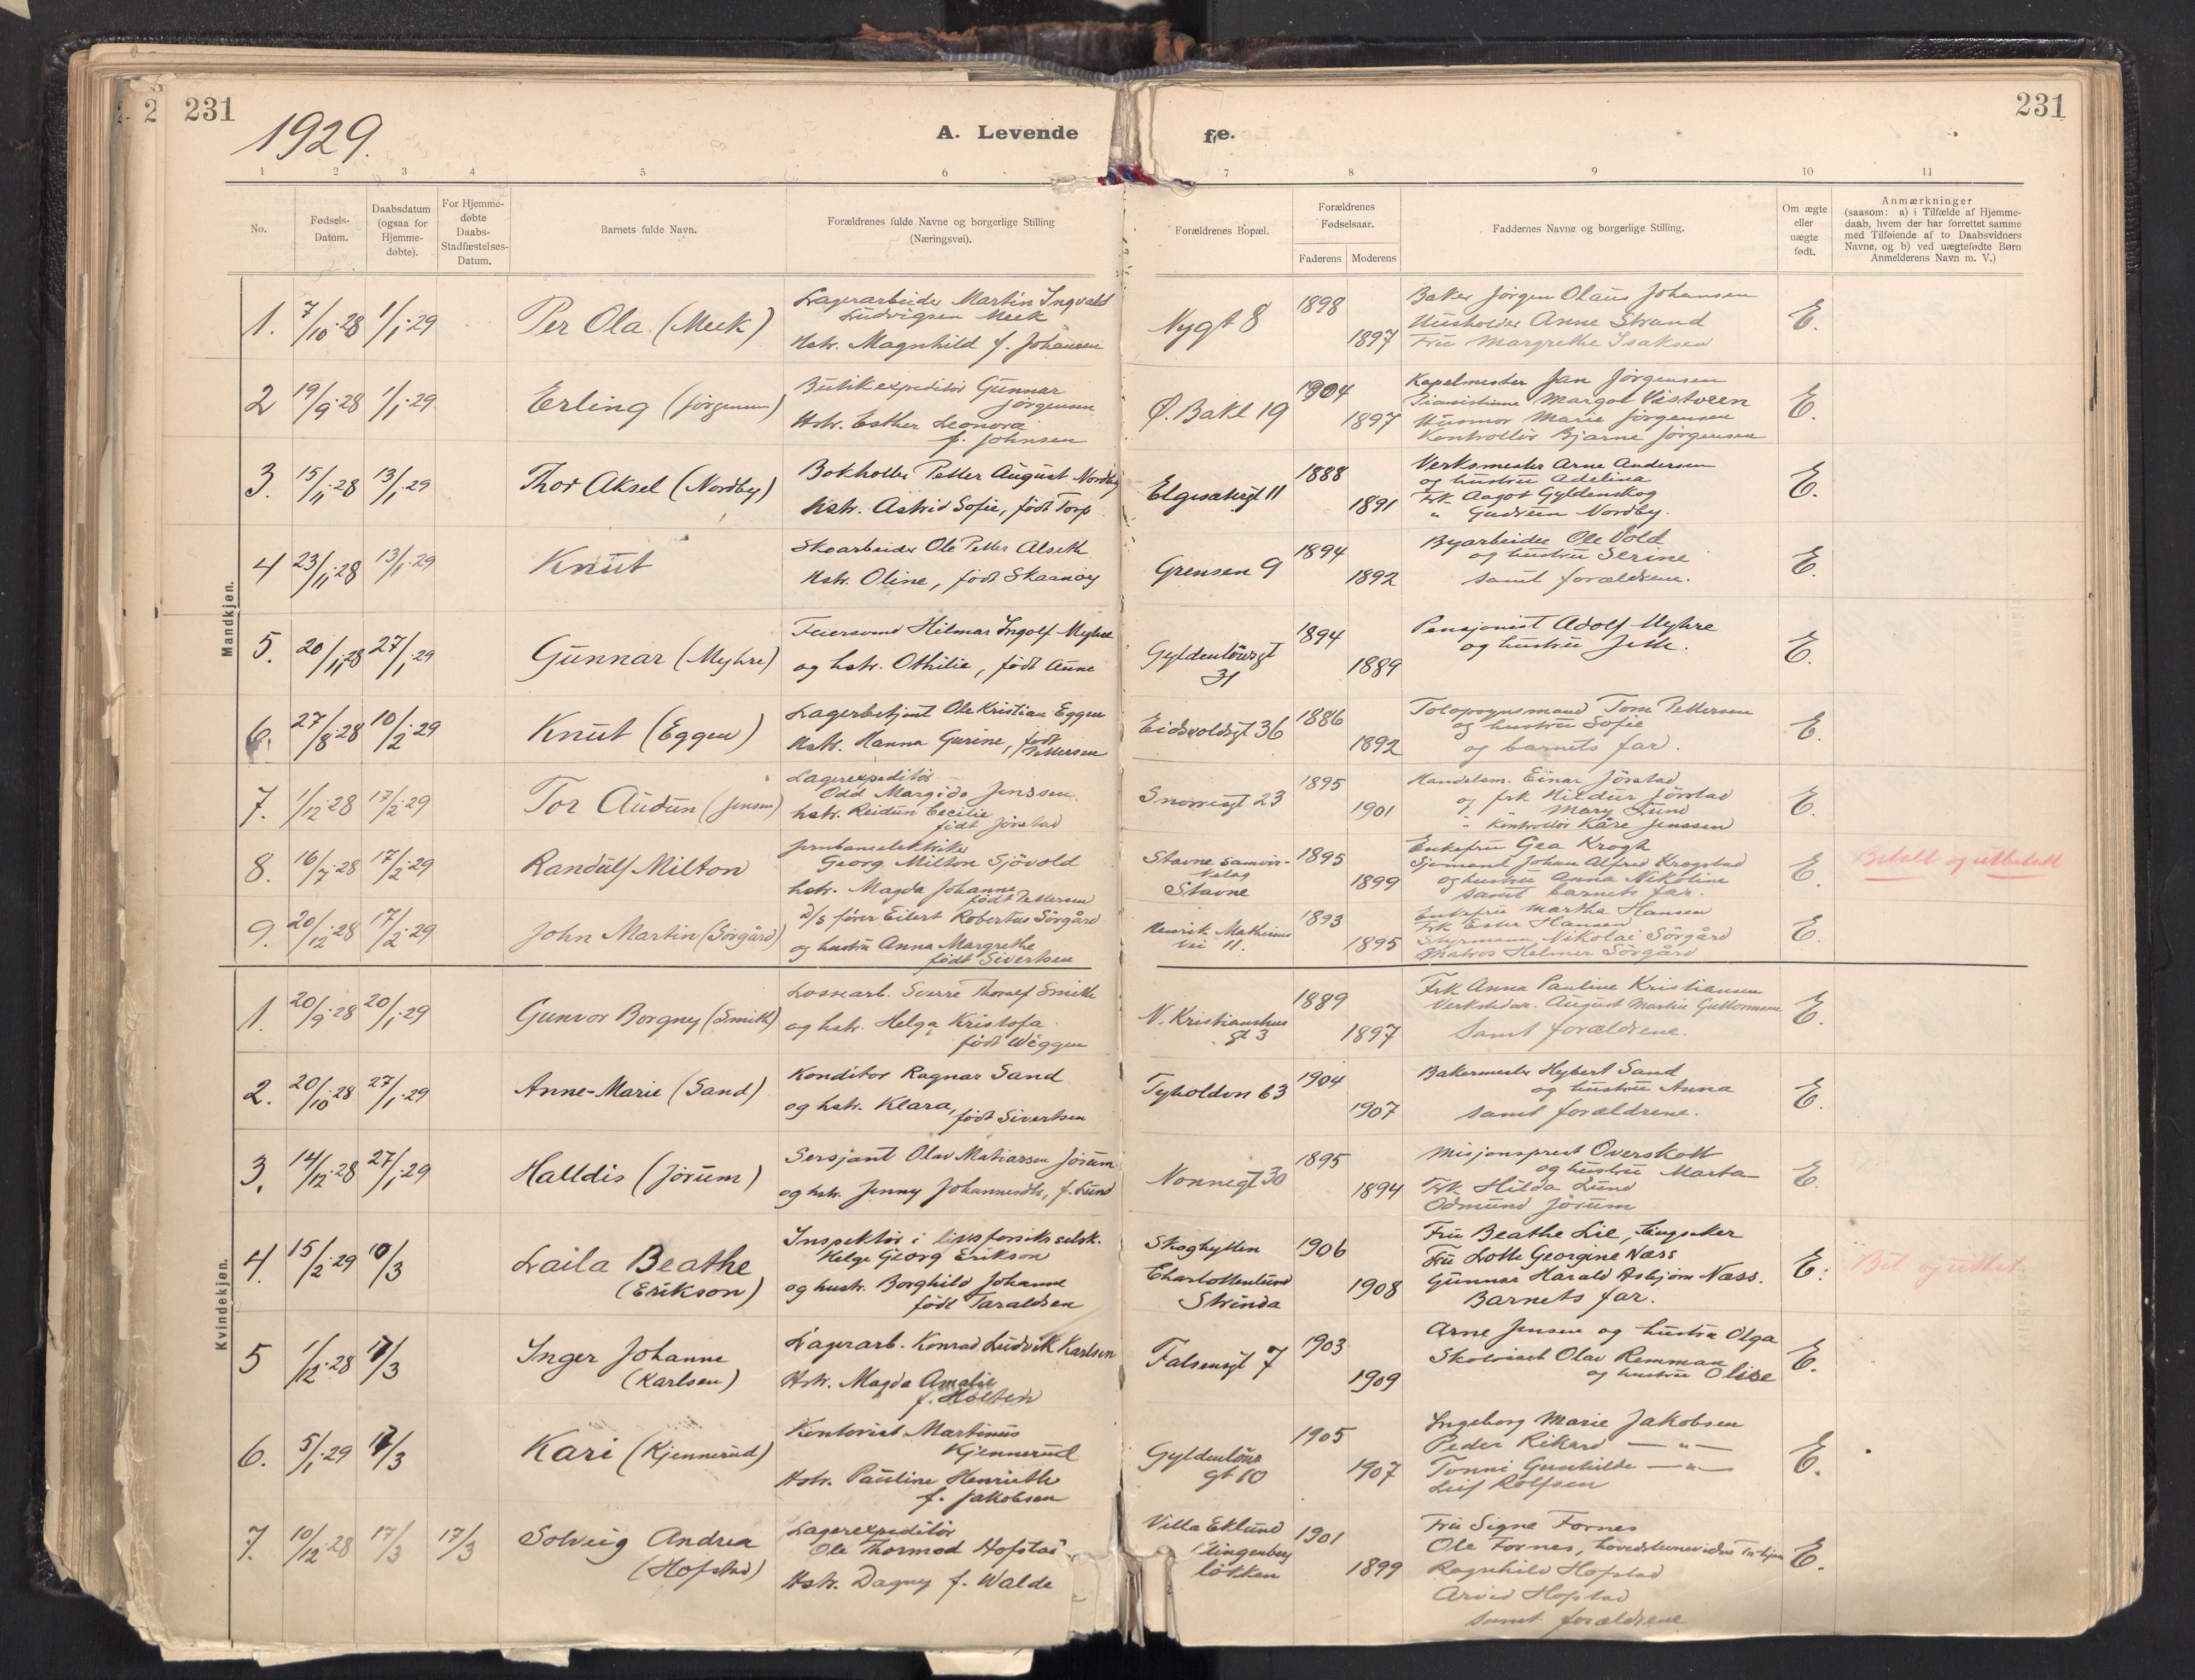 231
1929.
A. Levende
fø.
231
1 2 3 4 5 6 7 8 9 10 11
No.
Fødsels-
Datum.
Daabsdatum
(ogsaa for
Hjemme-
døbte).
For Hjemme-
døbte
Daabs-
Stadfæstelses-
Datum.
Barnets fulde Navn.
Forældrenes fulde Navne og borgerlige Stilling
(Næringsvei).
Forældrenes Bopæl.
Forældrenes
Fødselsaar.
Faderens Moderens
Faddernes Navne og borgerlige Stilling.
Om ægte
eller
uægte
født.
Anmærkninger
(saasom: a) i Tilfælde af Hjemme-
daab, hvem der har forrettet samme
med Tilføiende af to Daabsvidners
Navne, og b) ved uægtefødte Børn
Anmelderens Navn m. V.)
Mandkjøn.
1. 7/10-28 1/1-29 Per Ola (Meek)
Lagerarbeider Martin Ingvald
Ludvigsen Meek
Hstr. Magnhild f. Johansen
Nygt 8 1898 1897
Baker Jörgen Olaus Johansen
Husholder Anne Strand
Fru Margrethe Isaksen
E.
2 19/9-28 1/1-29 Erling (Jörgensen)
Butikexpeditör Gunnar
Jörgensen
Hstr. Esther Leonora
f. Johnsen
Ø. Bakl 19 1904 1897
Kapelmester Jan Jörgensen
Pianistinne Margot Vistveen
Husmor Marie Jörgensen
Kontrollör Bjarne Jörgensen
E.
3. 15/11-28 13/1-29 Thor Aksel (Nordby)
Bokholder Petter August Nordby
Hstr. Astrid Sofie, födt Torp
Elgesetergt 11 1888 1891
Verksmester Arne Andersen
og hustru Adelina
Frk. Aagot Gyldenskog
" Gudrun Nordby.
E.
4 23/11-28 13/1-29 Knut
Skoarbeider Ole Petter Alseth
Hstr. Oline, födt Skaanöy
Grensen 9 1894 1892
Byarbeider Ole Vold
og hustru Serine
samt forældrene.
E.
5. 20/11-28 27/1-29 Gunnar (Myhre)
Feiersvend Hilmar Ingolf Myhre
og hstr. Othilie, födt Aune
Gyldenlövesgt
31 1894 1889
Pensjonist Adolf Myhre
og hustru Jette.
E.
6. 27/8-28 10/2-29 Knut (Eggen)
Lagerbetjent Ole Kristian Eggen
Hstr. Hanna Gurine, födt
Pettersen
Eidsvoldsgt 36 1886 1892
Tolopsynsmand Tom Pettersen
og hustru Sofie
og barnets far.
E.
7. 1/12-28 17/2-29 Tor Audun (Jensen)
Lagerexpeditör
Odd Margido Jenssen
hstr. Reidun Cecilie
födt Jörstad
Snorresgt 23 1895 1901
Handelsm. Einar Jörstad
og frk Hildur Jörstad
" " Mary Lund
" Kontrollör Kåre Jenssen
E.
8. 16/7-28 17/2-29 Randulf Milton
Jernbaneelektriker
Georg Milton Sjövold
hstr. Magda Johanne
födt Pettersen
Stavne samvir-
kelag
Stavne 1895 1899
Enkefru Gea Krogh
Sjömant Johan Alfred Krogstad
og hustru Anna Nikoline
samt barnets far.
E. Betalt og utbetalt
9. 20/12-28 17/2-29 John Martin (Sörgård)
D/S förer Eilert Robertus Sörgård
og hustru Anna Margrethe
födt Sivertsen
Henrik Mathisens
vei 11. 1893 1895
Enkefru Martha Hansen
Frk Ester Hansen
Styrmann Nikolai Sörgård
Matros Helmer Sörgård
E.
Kvindekjøn.
1. 20/9-28 20/1-29 Gunvor Borgny (Smith)
Lossearb. Sverre Thoralf Smith
og hstr. Helga Kristofa
födt Wiggen
N. Kristianshus
gt 3 1889 1897
Frk Anna Pauline Kristiansen
Verkstedar. August Martin Guttormsen
samt forældrene.
E.
2. 20/10-28 27/1-29 Anne-Marie (Sand)
Konditor Ragnar Sand
og hstr. Klara, födt Sivertsen
Tyholdvn 63 1904 1907
Bakermester Hybert Sand
og hustru Anna
samt forældrene.
E.
3. 14/12-28 27/1-29 Halldis (Jörum)
Sersjant Olav Matiassen Jörum
og hstr. Jenny Johannesdtr, f. Lund
Nonnegt 30 1895 1894
Misjonsprest Overskott
og hustru Marta
Frk. Hilda Lund
Odmund Jörum
E.
4. 15/2-29 10/3 Laila Beathe
(Erikson)
Inspektör i livsforsikr.selsk.
Helge Georg Erikson
og hustr. Borghild Johanne
födt Taraldsen
Skoghytten
Charlottenlund
Strinda 1906 1908
Fru Beathe Lie,
Fru Lotte Georgine Næss
Gunnar Harald Asbjörn Næss.
Barnets far.
E. Bet. og utbet.
5 1/12-28 17/3 Inger Johanne
(Karlsen)
Lagerarb. Konrad Ludvik Karlsen
Hstr. Magda Amalie
f. Holten
Falsensgt 7 1903 1909
Arne Jensen og hustru Olga
Olav Remman
og hustru Olise
E.
6. 5/1-29 17/3 Kari (Kjennerud)
Kontorist Martinus
Kjennerud
Hstr. Pauline Henriette
f. Jakobsen
Gyldenlöves
gt 10 1905 1907
Ingeborg Marie Jakobsen
Peder Rikard — " —
Tonni Gunhilde — " —
Leif Rolfsen
E.
7. 10/12-28 17/3 17/3 Solveig Andrea
(Hofstad)
Lagerexpeditör
Ole Thormod Hofstad
Hstr. Dagny f. Walde
Villa Eklund
Klingenberg
lökken 1901 1899
Fru Signe Fornes
Ole Fornes,
Ragnhild Hofstad
Arvid Hofstad
samt forældrene
E.